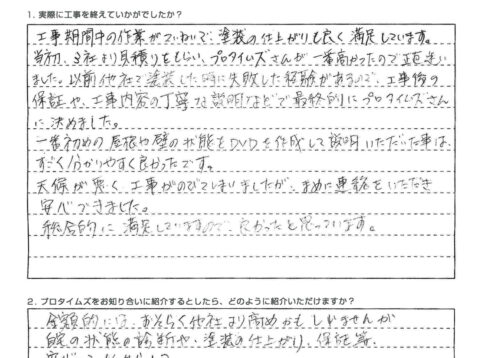 1. 実際に工事を終えていかがでしたか？
工事期間中の作業がていねいで、塗装の仕上がりも良く満足しています。
当初、3社より見積りをもらい、プロタイムズさんが一番高かったので正直迷い
ました。以前他社で塗装した時に失敗した経験があるので、工事後の
保証や、工事内容の丁寧な説明などで最終的にプロタイムズさん
に決めました。
一番初めの屋根や壁の状態をDVDを作成して説明いただいた事は、
すごく分かりやすく良かったです。
天候が悪く、工事がのびてしまいましたが、まめに連絡をいただき
安心できました。
総合的に満足していますので、良かったと思っています。
2. プロタイムズをお知り合いに紹介するとしたら、どのように紹介いただけますか？
金額的には、おそらく他社より高めかもしれませんが
の状態の診断や、塗装の仕上がり、保証等